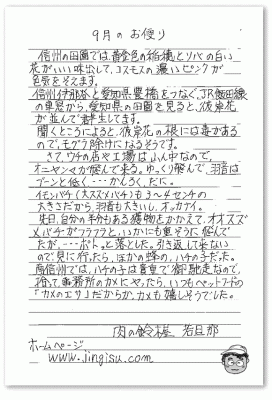 9月のお便り
信州の田園では、黄金色の稲穂とソバの白い
花がいい味出して、コスモスの濃いピンクが
色気をそえます。
信州伊那谷と愛知県豊橋をつなぐ、JR飯田線
の車窓から、愛知県の田園を見ると、彼岸花
が並んで群生してます。
聞くところによると、彼岸花の根には毒がある
ので、モグラ除けになるそうです。
さて、ウチの店や工場は山ん中なので、
オニヤンマが飛んで来る。ゆっくり飛んで、羽音は
ブーンと低く…かんろく、だに。
イモンバチ(大スズメバチ)も3〜4センチの
大きさだから、羽音も大きいし、オッカナイ。
先日、自分の半分もある獲物をかかえて、オオスズ
メバチがフラフラと、いかにも重そうに飛んで
たが、…ポト。と落とした。引き返して来ない
ので見に行ったら、ほかの蜂の、ハチの子だった。
南信州では、ハチの子は貴重で御馳走なので、
拾って事務所のカメにやったら、いつもペットフードの
「カメのエサ」だからか、カメも嬉しそうでした。
肉の鈴木屋 若旦那
ホームページ
www.jingisu.com